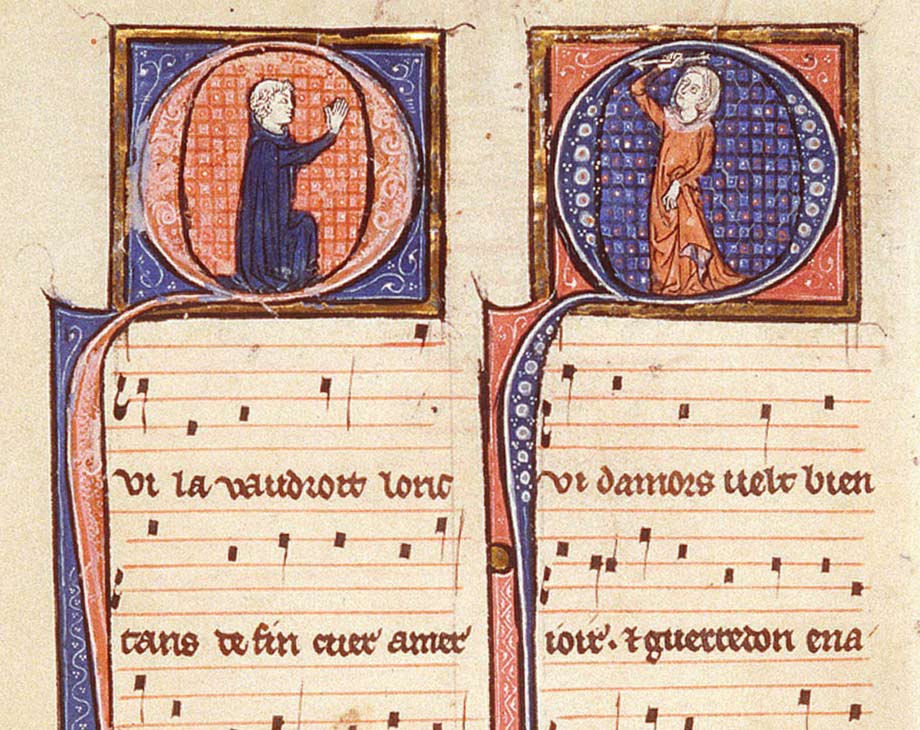 Qvi la vaudroit lonc
tans de fin cuer amer
Qvi damors uelt bien
ioir. ⁊ guerredon ena